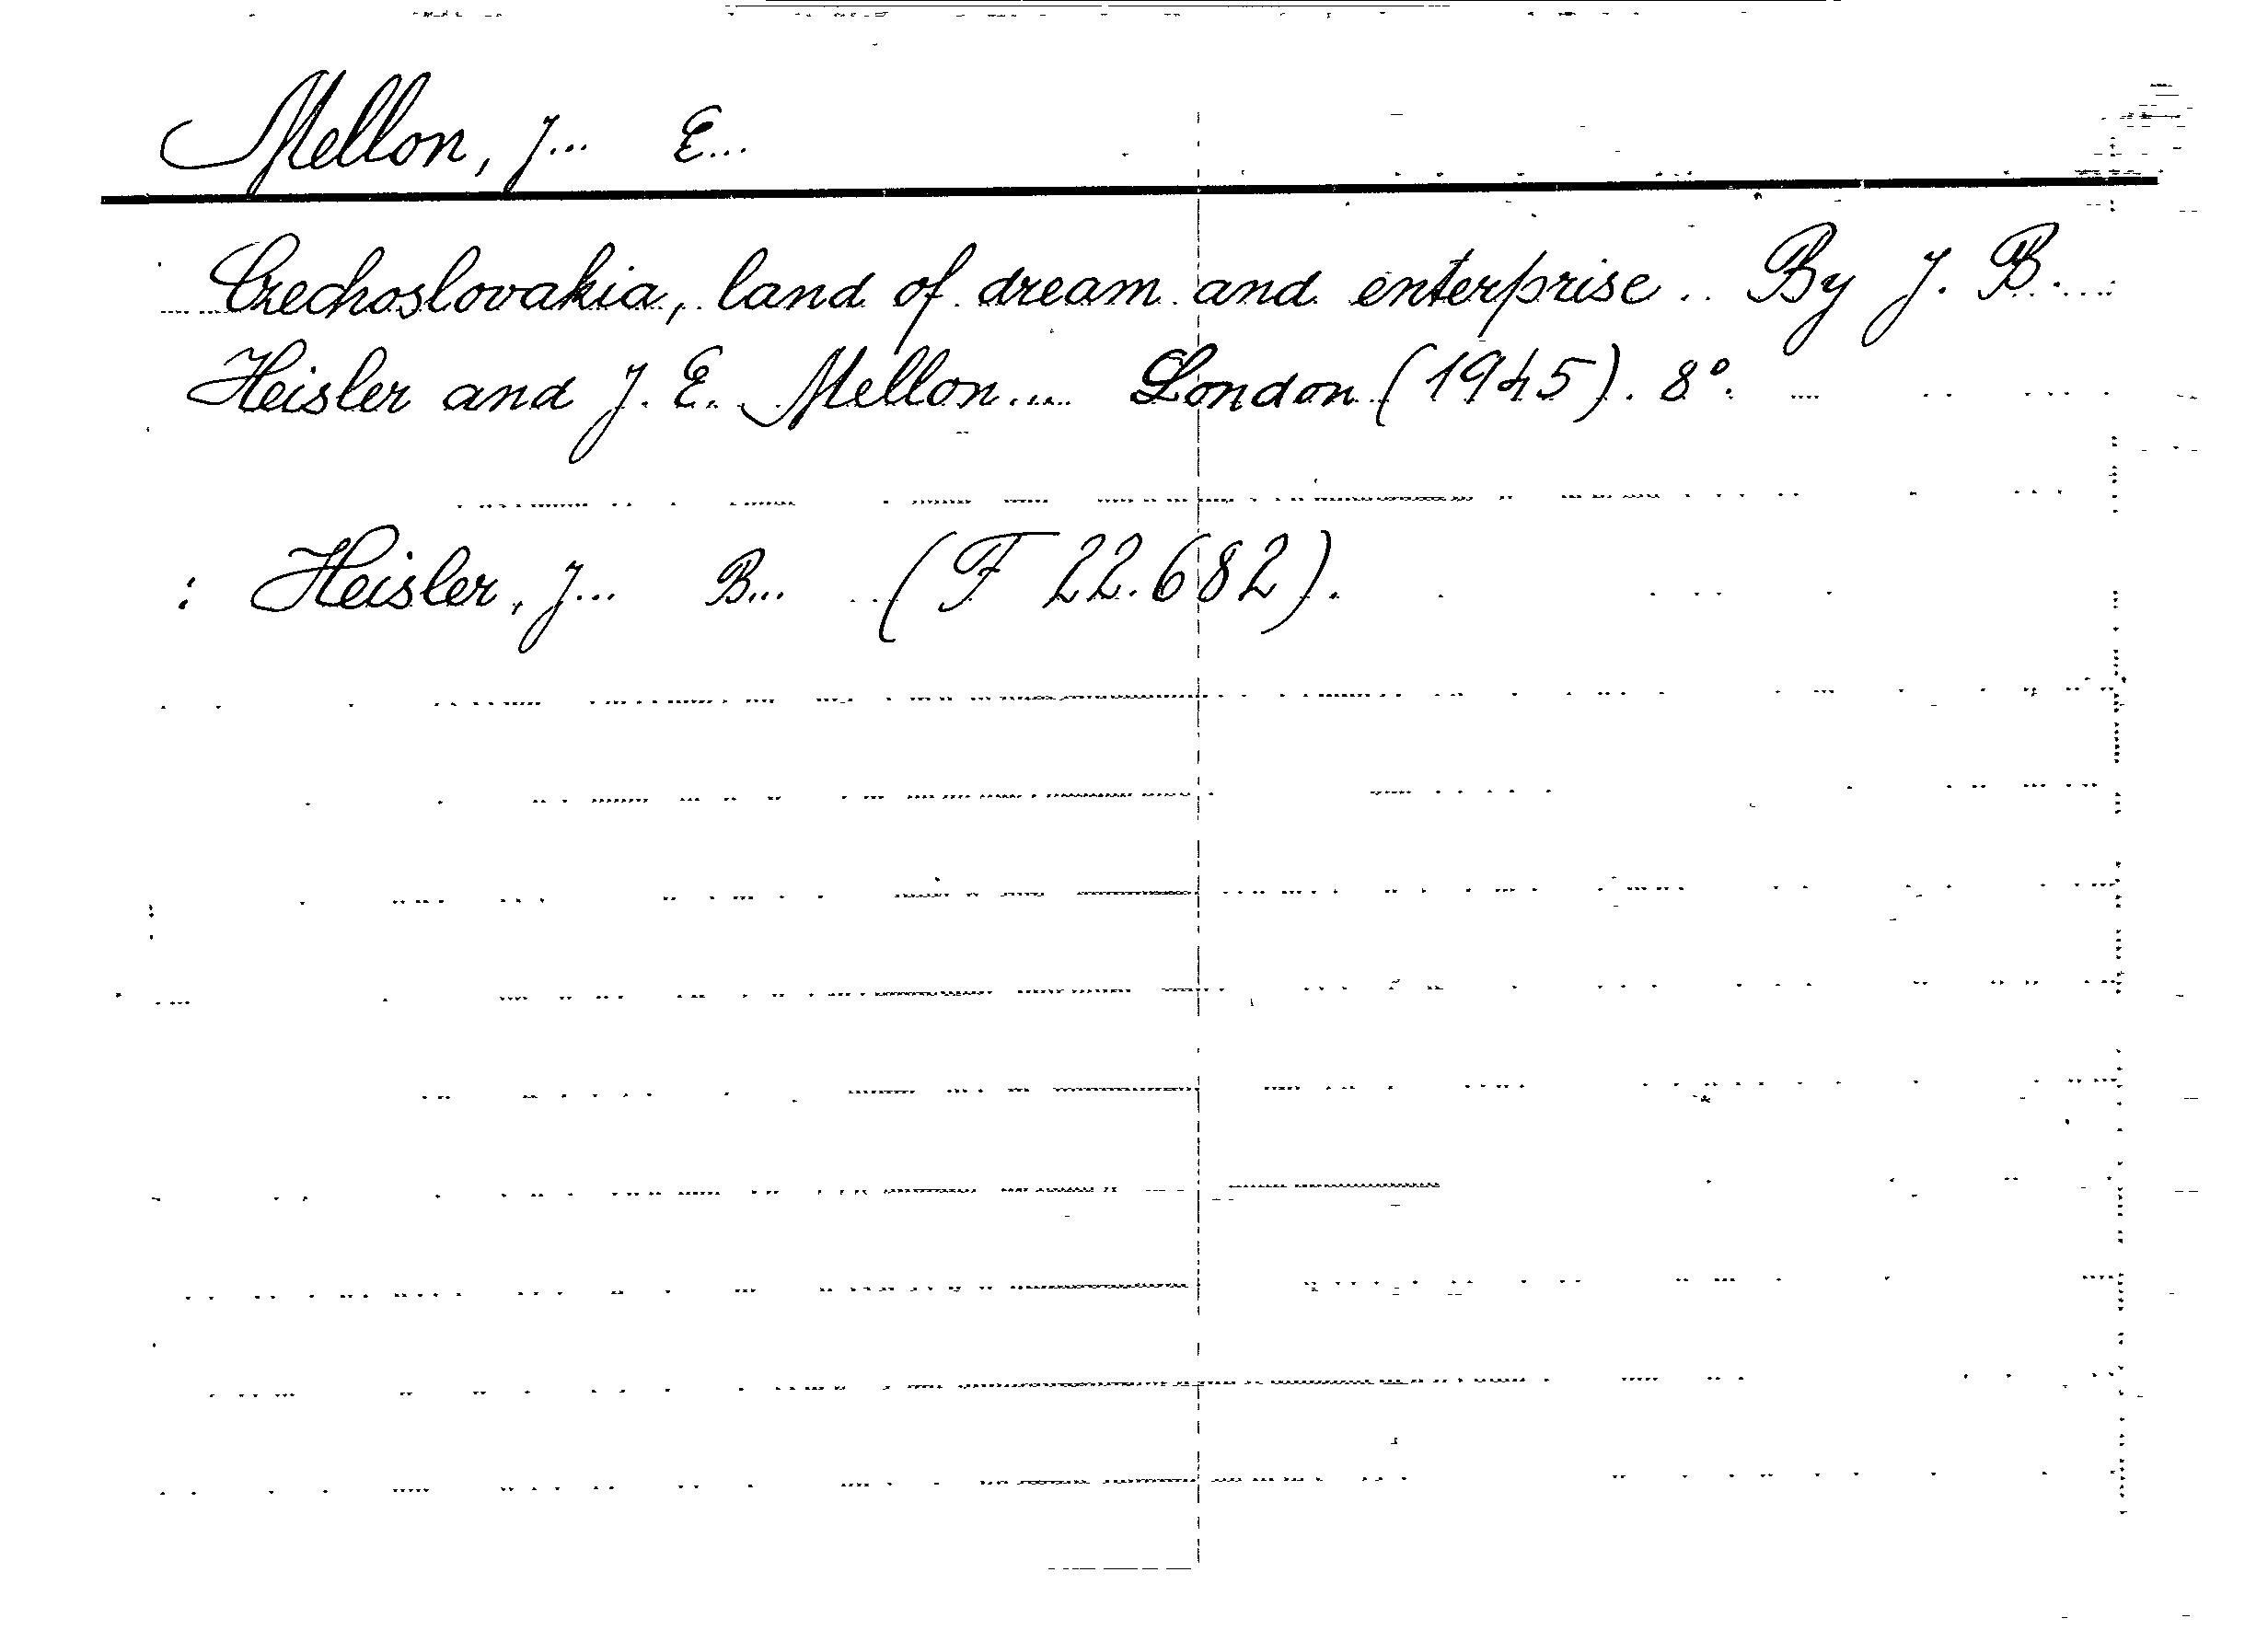 Mellon, J... E...
Czechoslovakia, land of dream and enterprise.. By J. B.
Heisler and J. E. Mellon.... London (1945). 8°.
: Heisler, J... B... (F 22.682).